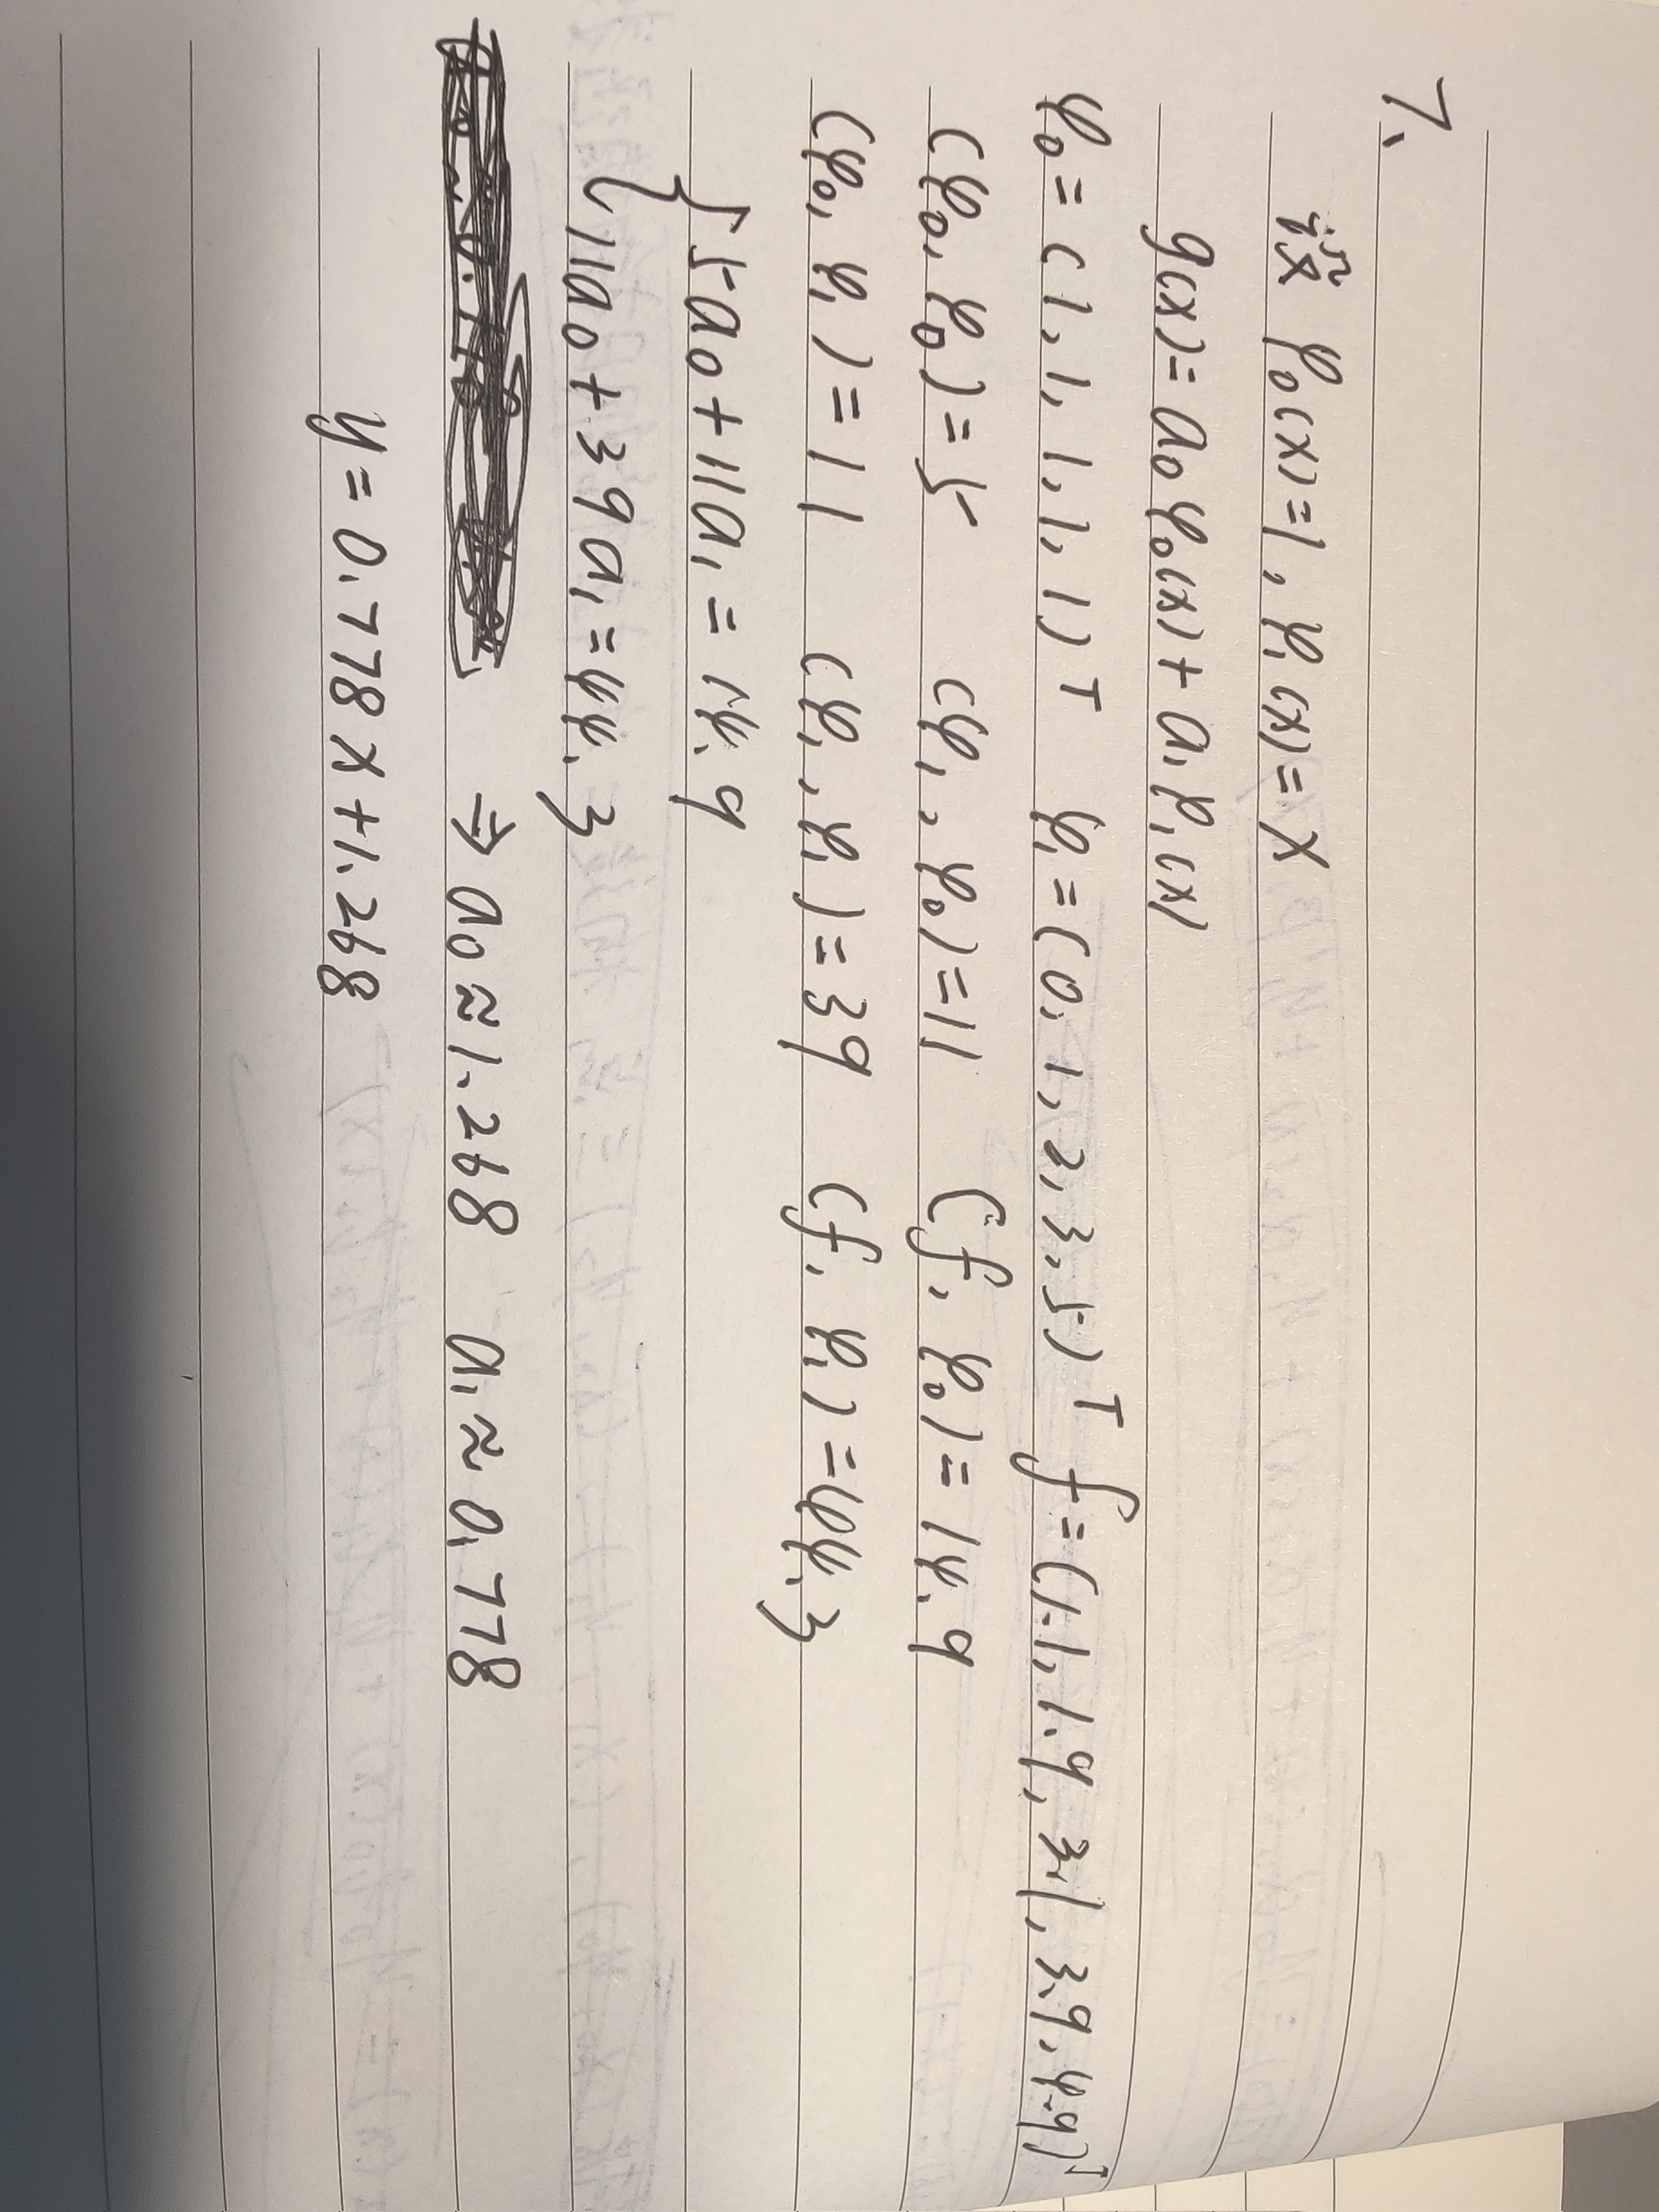 7、
设 φ₀(x)=1, φ₁(x)=x
g(x)=a₀φ₀(x)+a₁φ₁(x)
φ₀=(1,1,1,1,1)ᵀ φ₁=(0,1,2,3,5)ᵀ f=(1.1,1.9,3.1,3.9,4.9)ᵀ
(φ₀,φ₀)=5 (φ₁,φ₀)=11 (f,φ₀)=14.9
(φ₀,φ₁)=11 (φ₁,φ₁)=39 (f,φ₁)=44.3
{5a₀+11a₁=14.9
11a₀+39a₁=44.3
⇒ a₀≈1.268 a₁≈0.778
y=0.778x+1.268